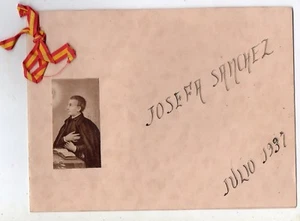 JOSEFA SÁNCHEZ
JULIO 1937